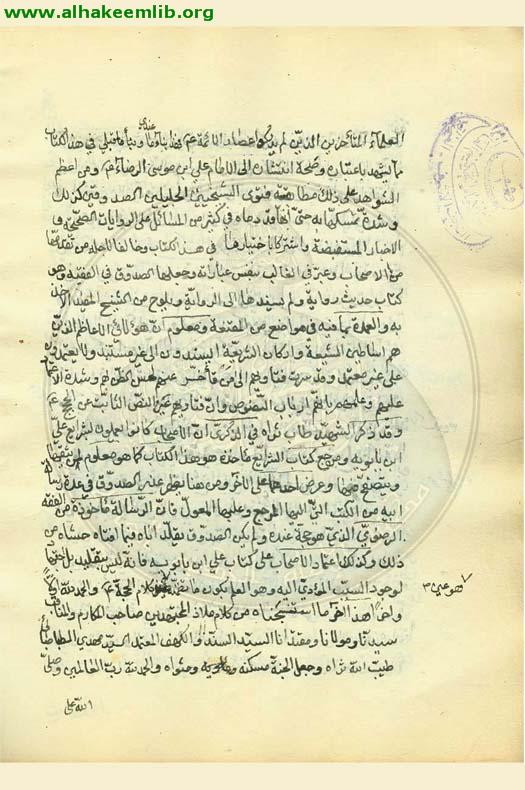 www.alhakeemlib.org
العلماء المتأخرين الذين لم يدركوا اعصار الائمة في هذا الكتاب
ما يشهد باعتباره وصحة انتسابه الى الامام علي ابن موسى الرضا ومن اعظم
الشواهد على ذلك مطابقة فتوى الشيخين الجليلين الصدوقين لذلك
وشدة تمسكهما به حتى انهما قدماه في كثير من المسائل على الروايات الصحيحة و
الاخبار المستفيضة في هذا الكتاب وخالفا لاجله من تقدمهما
من الاصحاب وعبرا في الغالب بنفس عباراته وجعلهما الصدوق في الفقيه وهو
كتاب حديث رواية ولم يسندها الى الرواية ويلوح من الشيخ المفيد الاخذ
به والعمل بما فيه في مواضع من المقنعة ومعلوم ان هؤلاء الاعاظم الذين
هم اساطين الشيعة واركان الشريعة لا يستندون الى غير مستند ولا يعتمدون
على غير معتمد وقد سرت فتاويهم الى من تأخر عنهم لحسن ظنهم بهم وشدة
عليهم وعلمهم بانهم ارباب النصوص وان فتاويهم عين النص الثابت عن الحجج
وقد ذكر الشهيد طاب ثراه في الذكرى ان الاصحاب كانوا يعملون بشرايع علي
ابن بابويه ومرجع كتاب الشرايع ومأخذه هو هذا الكتاب كما هو معلوم لمن تتبعهما
وتصفح فيهما وعرض احدهما على الآخر ومن هنا يظهر عذر الصدوق في عده رسالة
ابيه من الكتب التي اليها المرجع وعليها المعول فان الرسالة مأخوذة من الفقه
الرضوي الذي هو حجة عنده ولم يكن الصدوق ليقلد اباه فيما افتاه حاشاه من
ذلك وكذلك اعتماد الاصحاب على كتاب علي ابن بابويه فانه ليس بتقليد بل
لوجود السبب المؤدي اليه وهو العلم بكون ما تضمنه كلام الحجة والحمد لله اولا
هو عين
واخرا هذا آخر ما استنسخناه من كلام ملاذ المجتهدين صاحب المكارم والمناقب
سيدنا ومولانا ومقتدانا السيد السند والكهف المعتمد السيد مهدي الطباطبائي
طيب الله ثراه وجعل الجنة مسكنه ومثواه والحمد لله رب العالمين وصلى
الله على